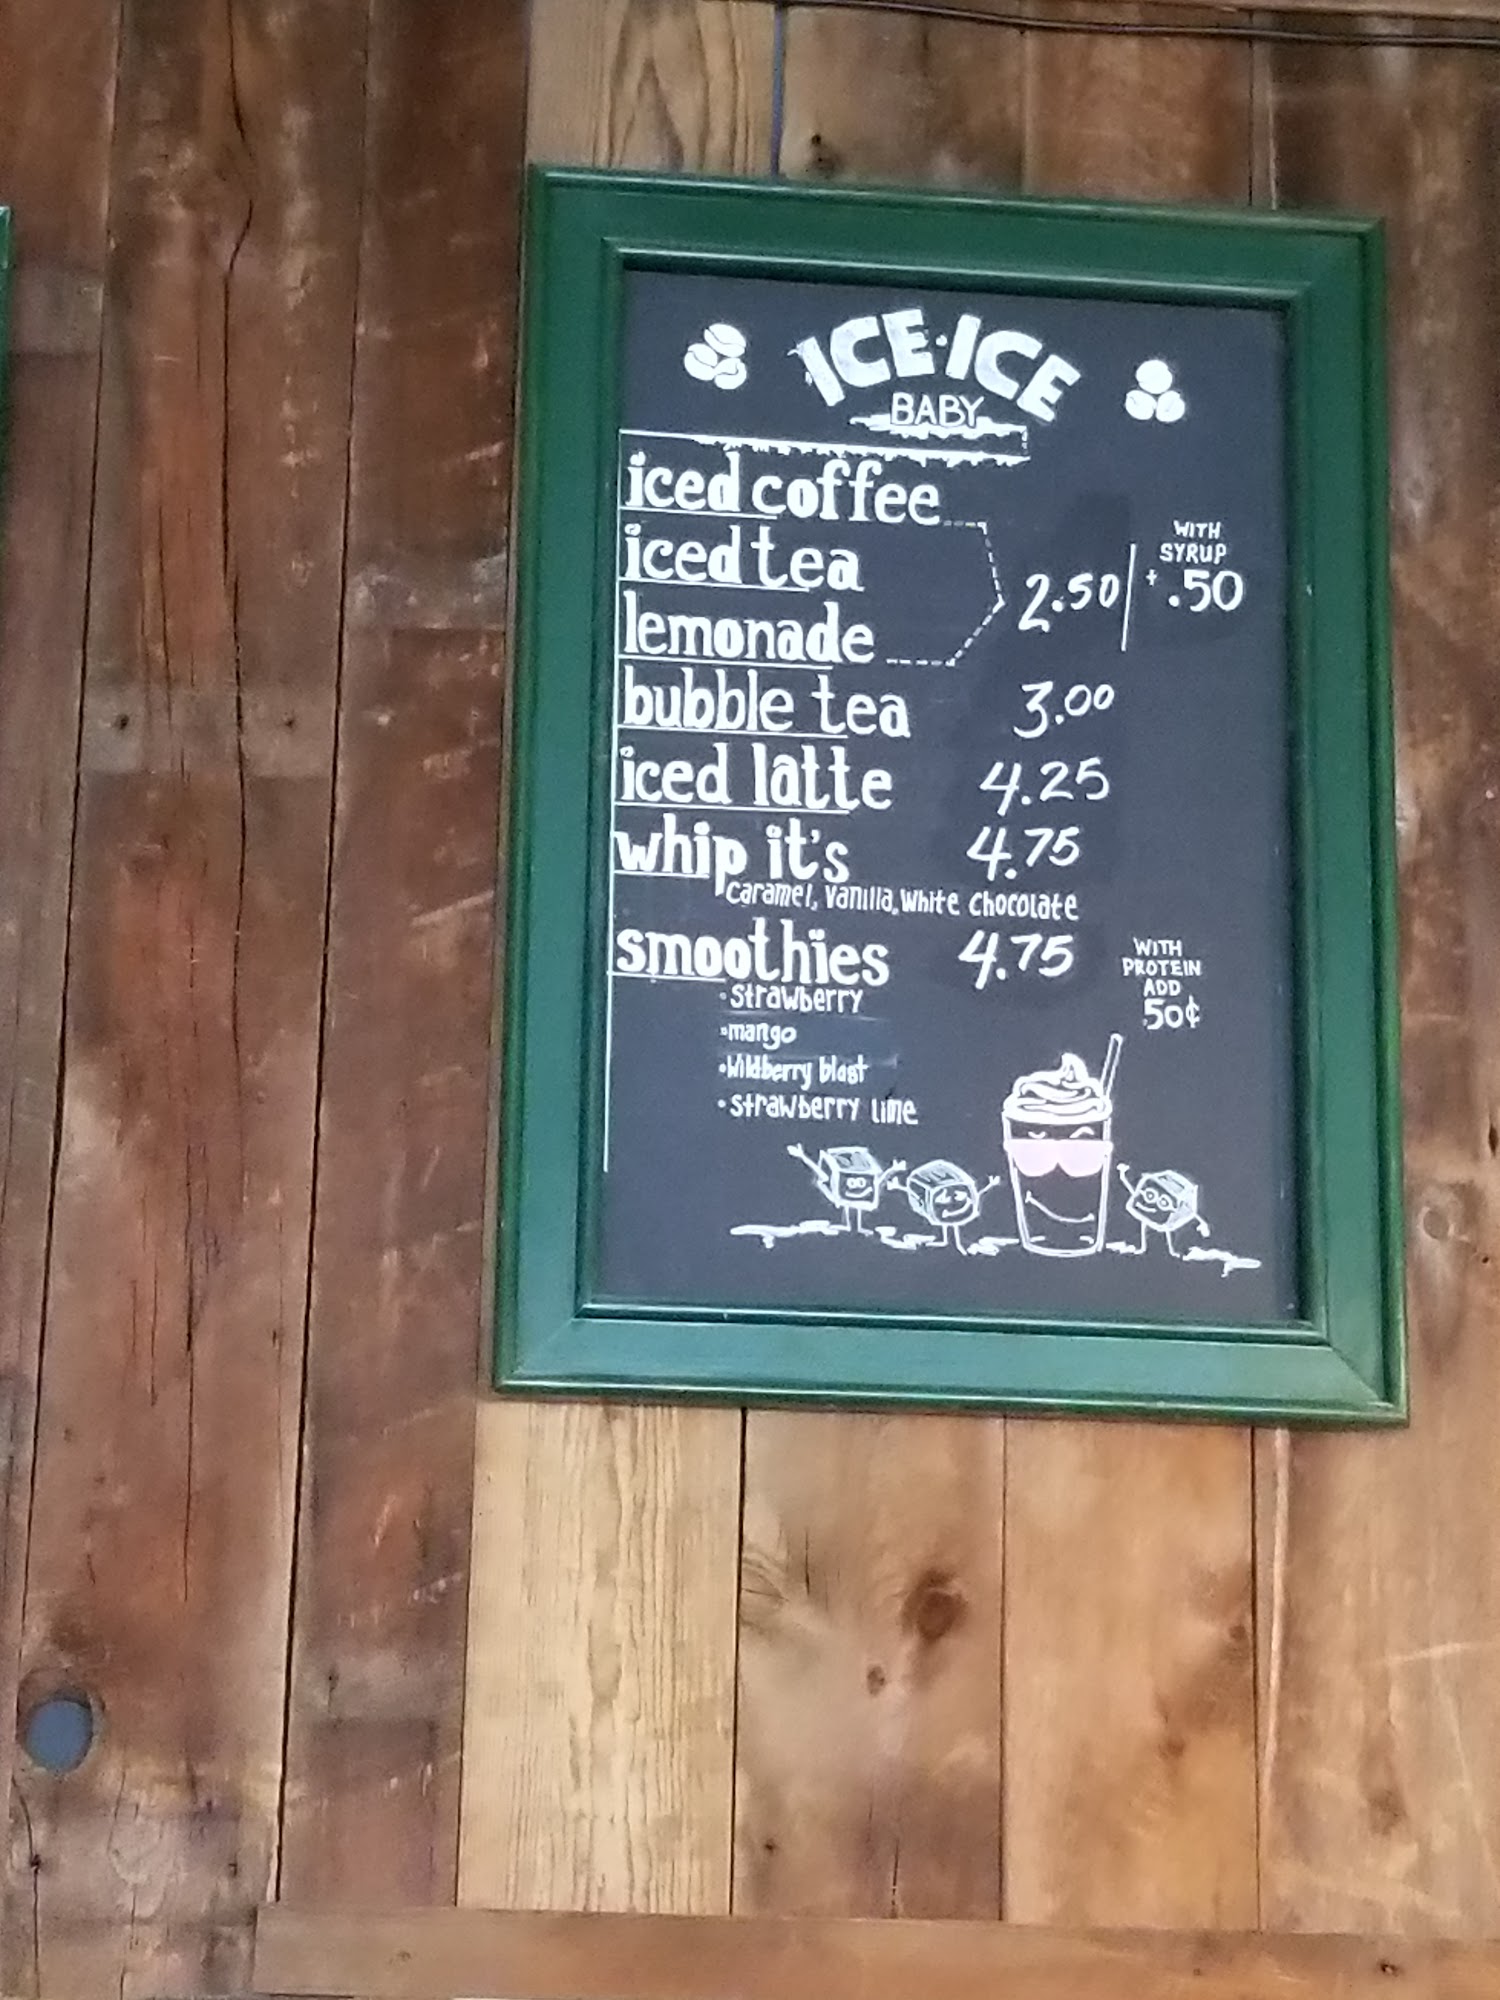 ICE·ICE
BABY
iced coffee
iced tea
lemonade
2.50
WITH
SYRUP
+.50
bubble tea 3.00
iced latte 4.25
whip it's 4.75
Caramel, Vanilla, White Chocolate
smoothies 4.75
WITH
PROTEIN
ADD
.50¢
• Strawberry
• mango
• Wildberry blast
• Strawberry lime